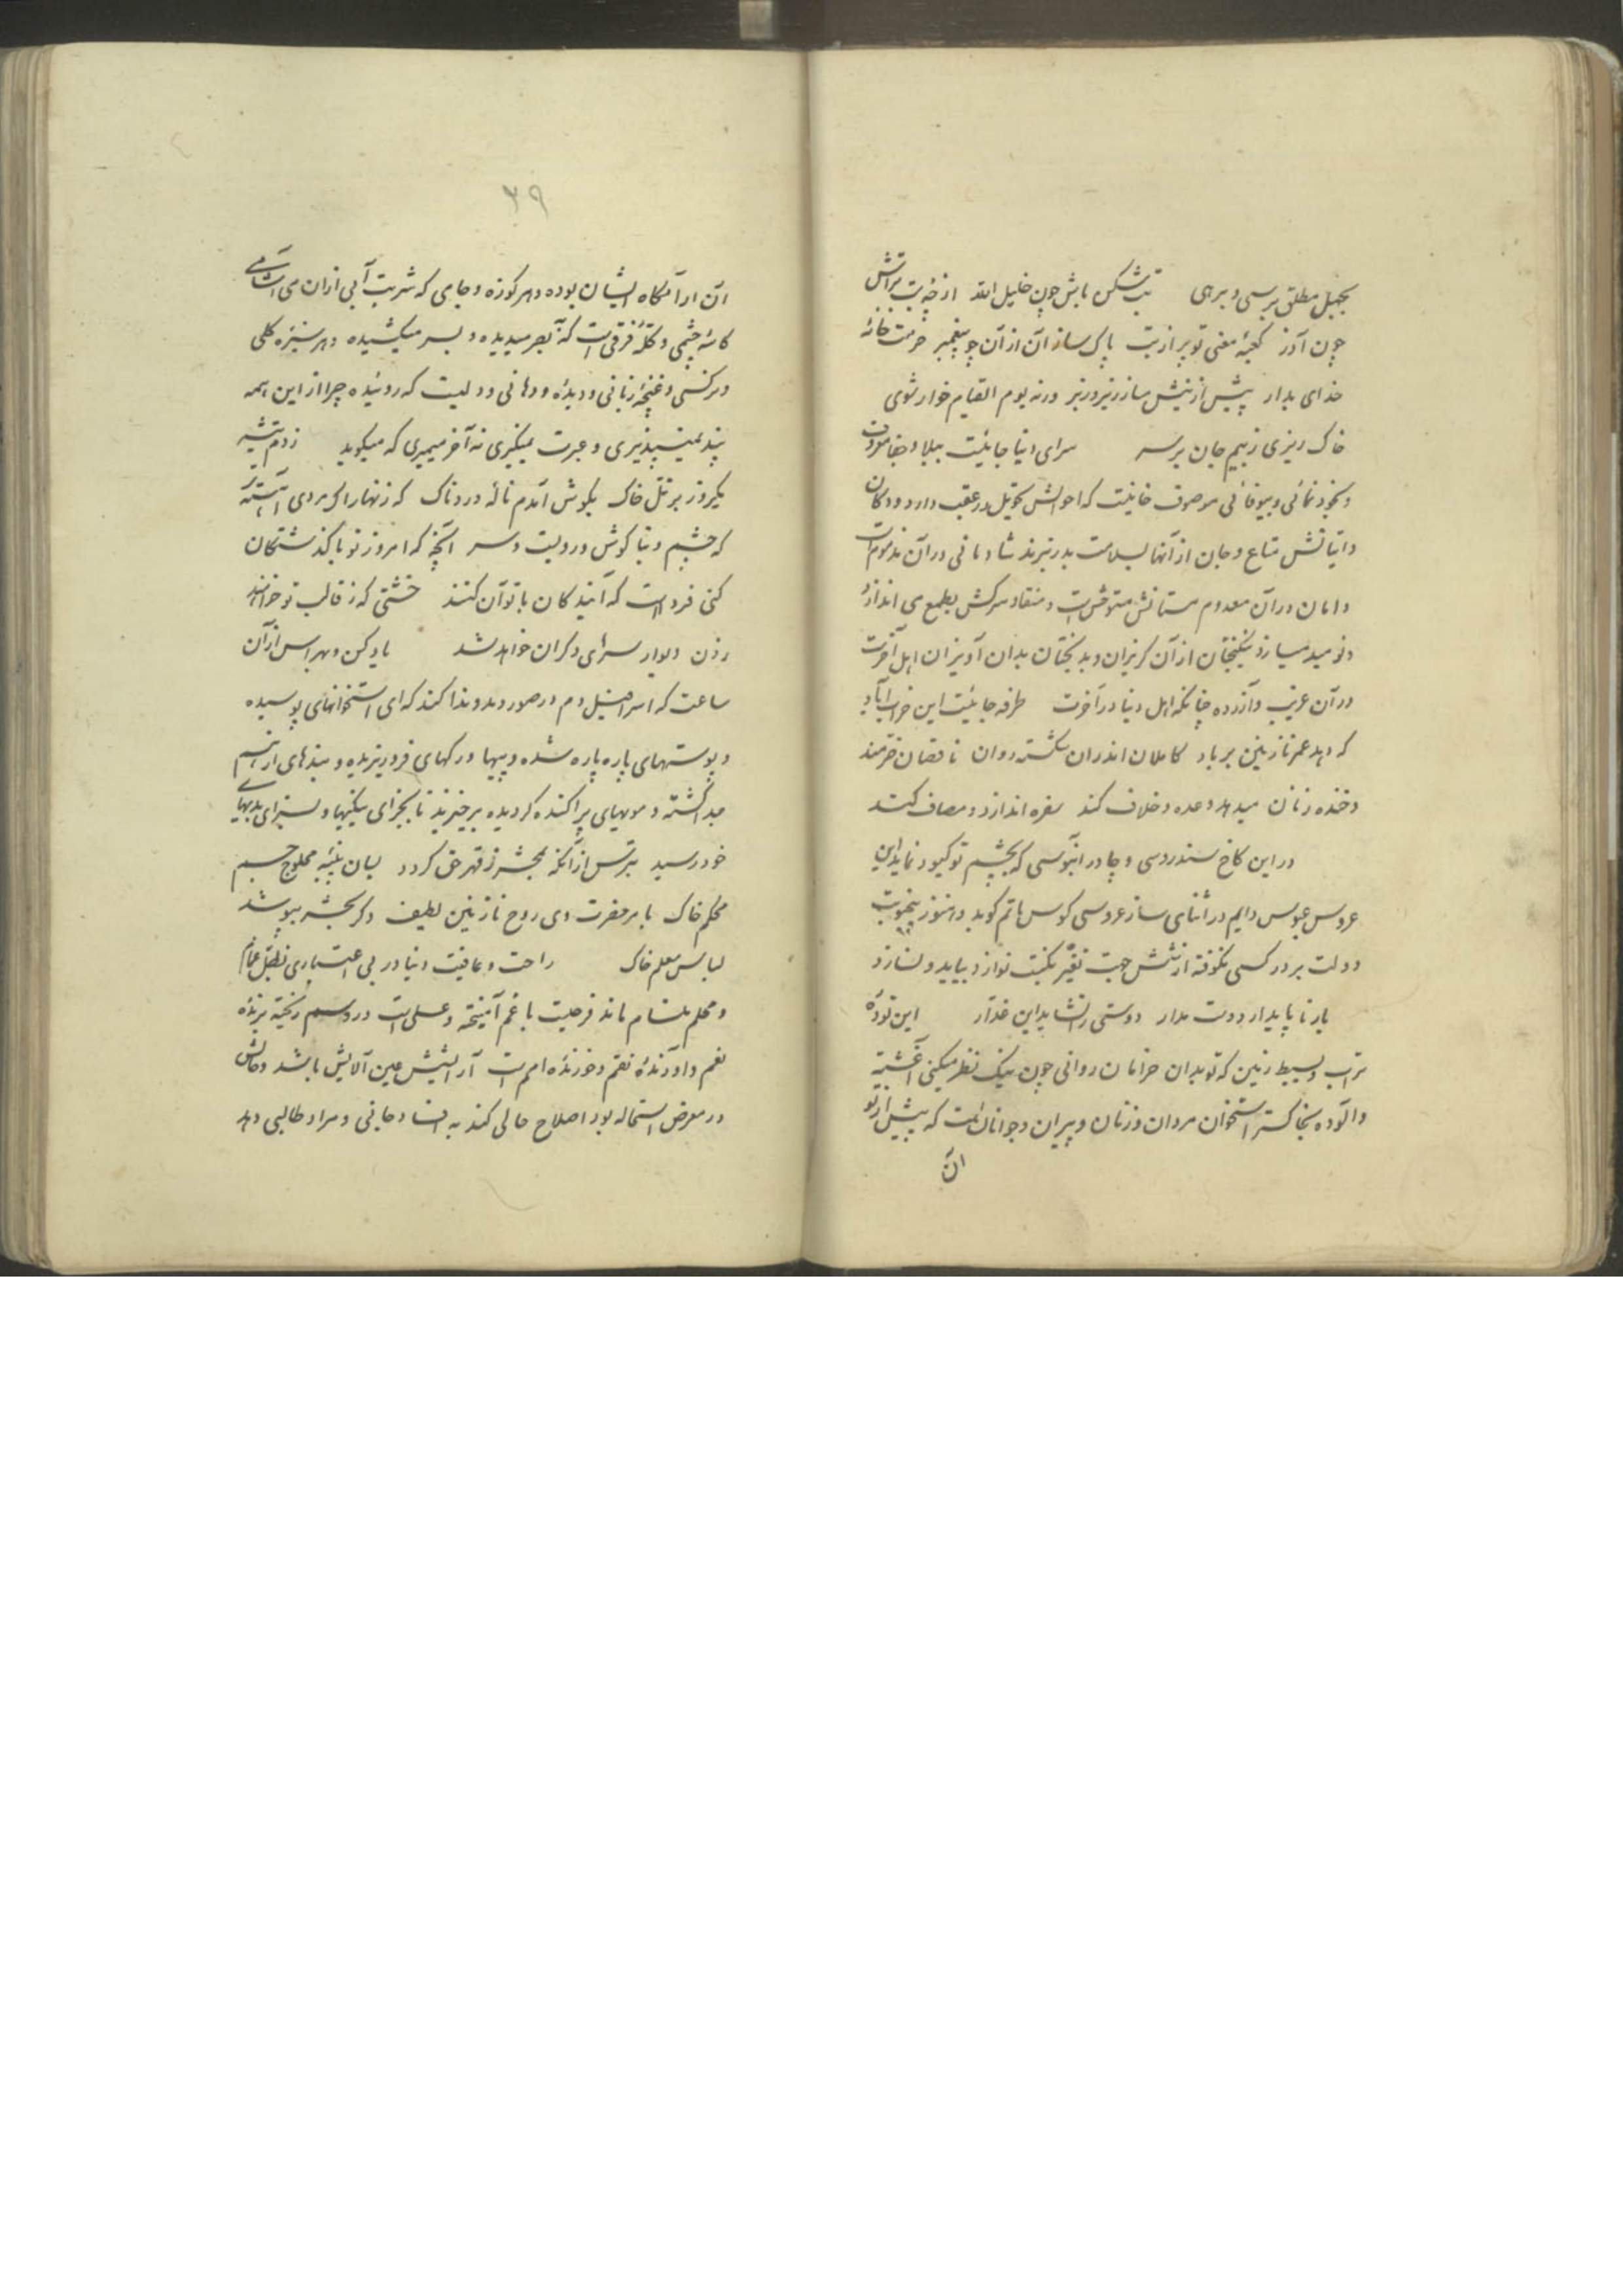 بجهل مطلق برسی و برهی بت شکن باش چون خلیل الله از چه بت تراش
چون آذر کعبهٔ معنی تو پر از بت پاک ساز آن از آن چو پیغمبر حرمت خانهٔ
خدای بدار پیش از نیش ساز زیر و زبر ورنه یوم القیام خوار شوی
خاک ریزی ز بیم جان بر سر سرای دنیا جائیست ببلا و جفا معروف
و بخود نمائی و بیوفائی موصوف خانیست که احوالش تحویل در عقب دارد و دکان
و اتیانش متاع و جان از آنها بسلامت بدر نبرند شادمانی در آن مذموم است
و امان در آن معدوم مستانش متوحش است و منقاد و سرکش بطمع می اندازد
و نومید میسازد نیکبختان از آن گریزان و بدبختان بدان آویزان اهل آخرت
در آن غریب و آزرده چنانکه اهل دنیا در آخرت طرفه جائیست این خراب آباد
که دهد عمر نازنین بر باد کاملان اندران شکسته روان ناقصان خرمند
و خنده زنان میدهد وعده و خلاف کند سفره اندازد و مصاف کند
در این کاخ سندروسی و چادر آبنوسی که بچشم تو کبود نماید این
عروس عبوس دایم در اثنای ساز عروسی کوس ماتم کوبد و هنوز
دولت بر در کسی نکوفته از شش جهت نفیر نکبت نوازد بیاید و نسازد
یار ناپایدار دوست مدار دوستی را نشاید این غدار این تودهٔ
تراب و بسیط زمین که تو بدان خرامان روانی چون نیک نظر میکنی آغشته
و آلوده بخاکستر استخوان مردان و زنان و پیران و جوانان است که پیش از تو
آن
۳۹
آن آرامگاه ایشان بوده و هر کوزه و جامی که شربت آبی ازان می آشامی
کاسهٔ چشمی و کلهٔ فرقی است که آن بصر میدیده و بسر میکشیده و هر سبزه گلی
و نرگسی و غنچهٔ زبانی و دیدهٔ و دهانی و دلیست که روئیده چرا از این همه
پند نمیپذیری و عبرت نمیگیری نه آخر میمیری که میگوید زدم تیشه
یکروز بر تل خاک بگوش آمدم نالهٔ دردناک که زنهار اگر مردی آهسته تر
که چشم و بناگوش و رویست و سر آنچه که امروز تو با گذشتگان
کنی فرداست که آیندگان با تو آن کنند خشتی که ز قالب تو خواهند
زدن دیوار سرای دگران خواهد شد یاد کن و بهراس از آن
ساعت که اسرافیل دم در صور دمد و ندا کند که ای استخوانهای پوسیده
و پوستهای پاره پاره شده و پیها و رگهای فرو ریزیده و بندهای از هم
جدا گشته و مویهای پراکنده گردیده برخیزید تا بجزای نیکیها و بسزای بدیهای
خود رسید بترس از آنکه بحشر ز قهر حق گردد بسان پنبهٔ محلوج جسم
محکم خاک بامر حضرت وی روح نازنین لطیف دگر بحشر بپوشد
لباس معلم خاک راحت و عافیت دنیا در بی اعتباری بظل غمام
و حلم منام ماند فرحیست با غم آمیخته و عسلی است در و سم ریخته برندهٔ
نعم و آورندهٔ نقم و خورندهٔ امم است آرایشش عین آلایش باشد و حالش
در معرض استحاله بود اصلاح حالی کند به افساد جانی و مراد طالبی دهد